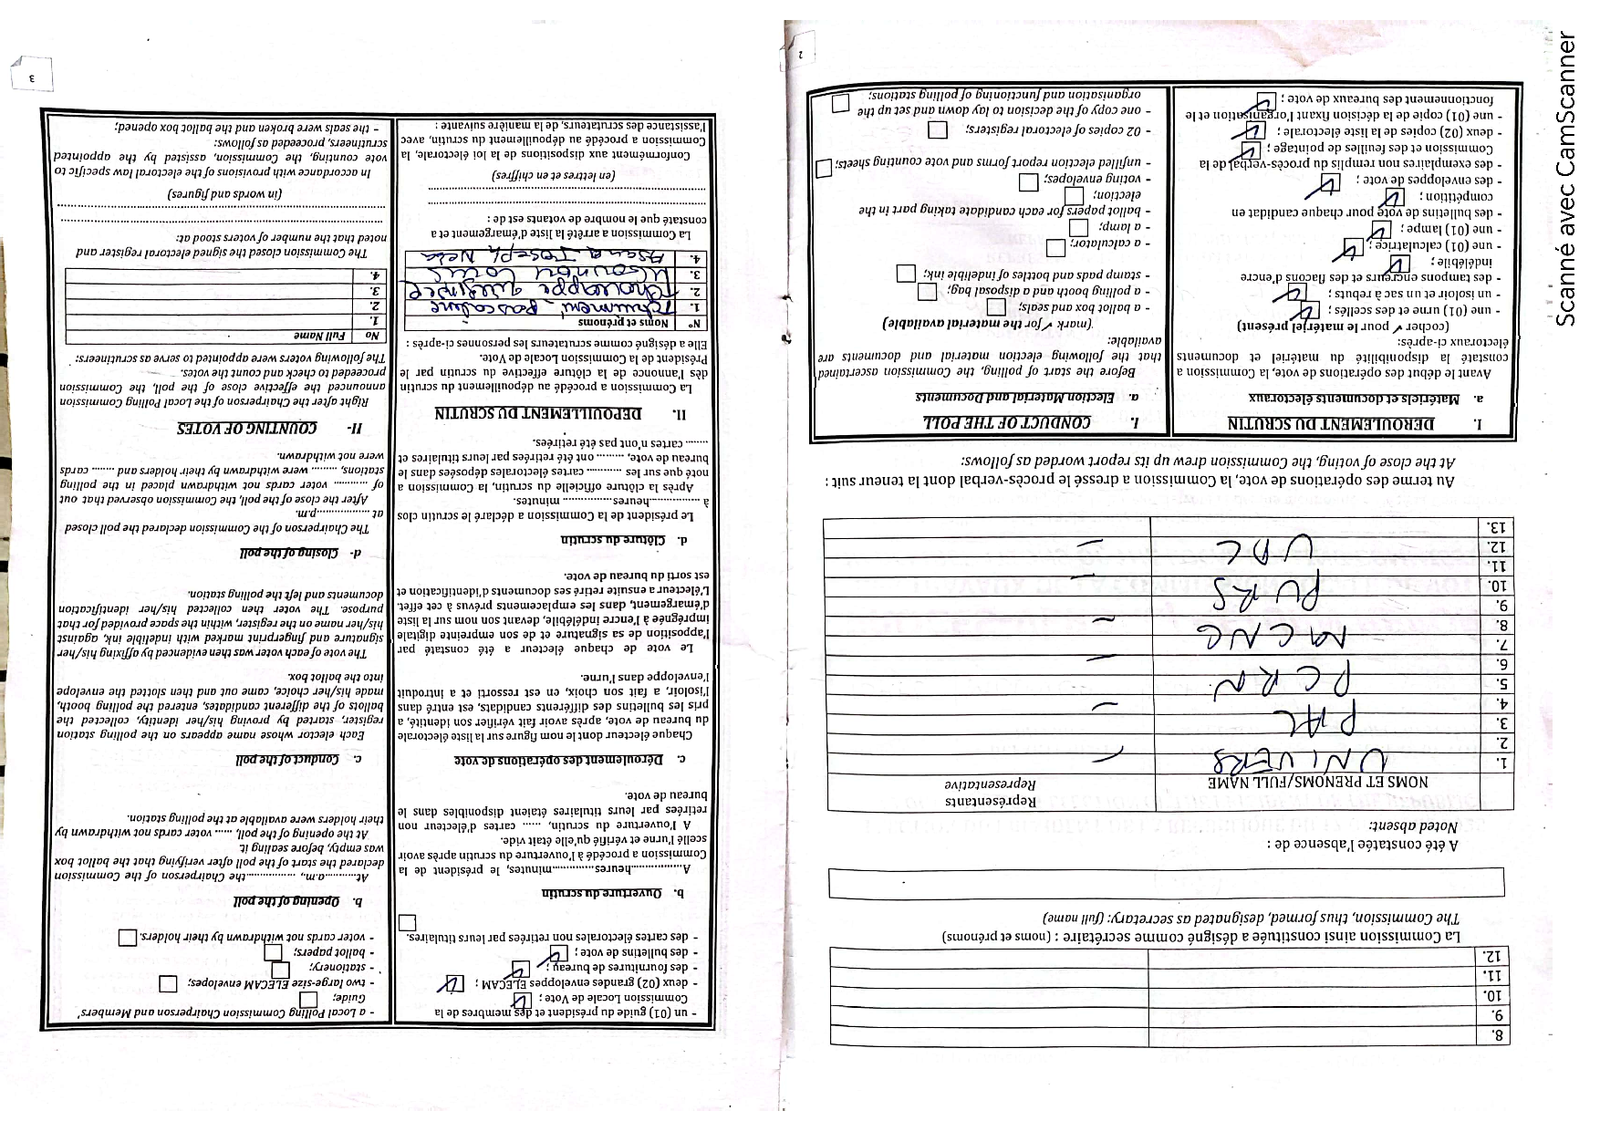 8.
9.
10.
11.
12.
La Commission ainsi constituée a désigné comme secrétaire : (noms et prénoms)
The Commission, thus formed, designated as secretary: (full name)
A été constatée l'absence de :
Noted absent:
NOMS ET PRENOMS/FULL NAME
Représentants
Representative
1. UNIVERS
2.
3. PAL
4.
5. PCRN
6.
7. MCNC
8.
9. PURS
10.
11.
12. UDC
13.
Au terme des opérations de vote, la Commission a dressé le procès-verbal dont la teneur suit :
At the close of voting, the Commission drew up its report worded as follows:
I. DEROULEMENT DU SCRUTIN
a. Matériels et documents électoraux
Avant le début des opérations de vote, la Commission a
constaté la disponibilité du matériel et documents
électoraux ci-après:
(cocher ✓ pour le matériel présent)
- une (01) urne et des scellés ;
- un isoloir et un sac à rebuts ;
- des tampons encreurs et des flacons d'encre
indélébile ;
- une (01) calculatrice ;
- une (01) lampe ;
- des bulletins de vote pour chaque candidat en
compétition ;
- des enveloppes de vote ;
- des exemplaires non remplis du procès-verbal de la
Commission et des feuilles de pointage ;
- deux (02) copies de la liste électorale ;
- une (01) copie de la décision fixant l'organisation et le
fonctionnement des bureaux de vote ;
I. CONDUCT OF THE POLL
a. Election Material and Documents
Before the start of polling, the Commission ascertained
that the following election material and documents are
available:
(mark ✓ for the material available)
- a ballot box and seals;
- a polling booth and a disposal bag;
- stamp pads and bottles of indelible ink;
- a calculator;
- a lamp;
- ballot papers for each candidate taking part in the
election;
- voting envelopes;
- unfilled election report forms and vote counting sheets;
- 02 copies of electoral registers;
- one copy of the decision to lay down and set up the
organisation and functioning of polling stations;
2
- un (01) guide du président et des membres de la
Commission Locale de Vote ;
- deux (02) grandes enveloppes ELECAM ;
- des fournitures de bureau ;
- des bulletins de vote ;
- des cartes électorales non retirées par leurs titulaires.
b. Ouverture du scrutin
A...............heures...............minutes, le président de la
Commission a procédé à l'ouverture du scrutin après avoir
scellé l'urne et vérifié qu'elle était vide.
A l'ouverture du scrutin, ...... cartes d'électeur non
retirées par leurs titulaires étaient disponibles dans le
bureau de vote.
c. Déroulement des opérations de vote
Chaque électeur dont le nom figure sur la liste électorale
du bureau de vote, après avoir fait vérifier son identité, a
pris les bulletins des différents candidats, est entré dans
l'isoloir, a fait son choix, en est ressorti et a introduit
l'enveloppe dans l'urne.
Le vote de chaque électeur a été constaté par
l'apposition de sa signature et de son empreinte digitale
imprégnée à l'encre indélébile, devant son nom sur la liste
d'émargement, dans les emplacements prévus à cet effet.
L'électeur a ensuite retiré ses documents d'identification et
est sorti du bureau de vote.
d. Clôture du scrutin
Le président de la Commission a déclaré le scrutin clos
à ...............heures............... minutes.
Après la clôture officielle du scrutin, la Commission a
noté que sur les ......... cartes électorales déposées dans le
bureau de vote, ......... ont été retirées par leurs titulaires et
....... cartes n'ont pas été retirées.
II. DEPOUILLEMENT DU SCRUTIN
La Commission a procédé au dépouillement du scrutin
dès l'annonce de la clôture effective du scrutin par le
Président de la Commission Locale de Vote.
Elle a désigné comme scrutateurs les personnes ci-après :
N° Noms et prénoms
1. Pascaline
2.
3. Louis
4. Joseph
La Commission a arrêté la liste d'émargement et a
constaté que le nombre de votants est de :
(en lettres et en chiffres)
Conformément aux dispositions de la loi électorale, la
Commission a procédé au dépouillement du scrutin, avec
l'assistance des scrutateurs, de la manière suivante :
- a Local Polling Commission Chairperson and Members'
Guide;
- two large-size ELECAM envelopes;
- stationery;
- ballot papers;
- voter cards not withdrawn by their holders.
b. Opening of the poll
At.........a.m., ...............the Chairperson of the Commission
declared the start of the poll after verifying that the ballot box
was empty, before sealing it.
At the opening of the poll, ...... voter cards not withdrawn by
their holders were available at the polling station.
c. Conduct of the poll
Each elector whose name appears on the polling station
register, started by proving his/her identity, collected the
ballots of the different candidates, entered the polling booth,
made his/her choice, came out and then slotted the envelope
into the ballot box.
The vote of each voter was then evidenced by affixing his/her
signature and fingerprint marked with indelible ink, against
his/her name on the register, within the space provided for that
purpose. The voter then collected his/her identification
documents and left the polling station.
d- Closing of the poll
The Chairperson of the Commission declared the poll closed
at ..................p.m.
After the close of the poll, the Commission observed that out
of ......... voter cards not withdrawn placed in the polling
stations, ......... were withdrawn by their holders and ....... cards
were not withdrawn.
II- COUNTING OF VOTES
Right after the Chairperson of the Local Polling Commission
announced the effective close of the poll, the Commission
proceeded to check and count the votes.
The following voters were appointed to serve as scrutineers:
No Full Name
1.
2.
3.
4.
The Commission closed the signed electoral register and
noted that the number of voters stood at:
(in words and figures)
In accordance with provisions of the electoral law specific to
vote counting, the Commission, assisted by the appointed
scrutineers, proceeded as follows:
- the seals were broken and the ballot box opened;
3
Scanné avec CamScanner